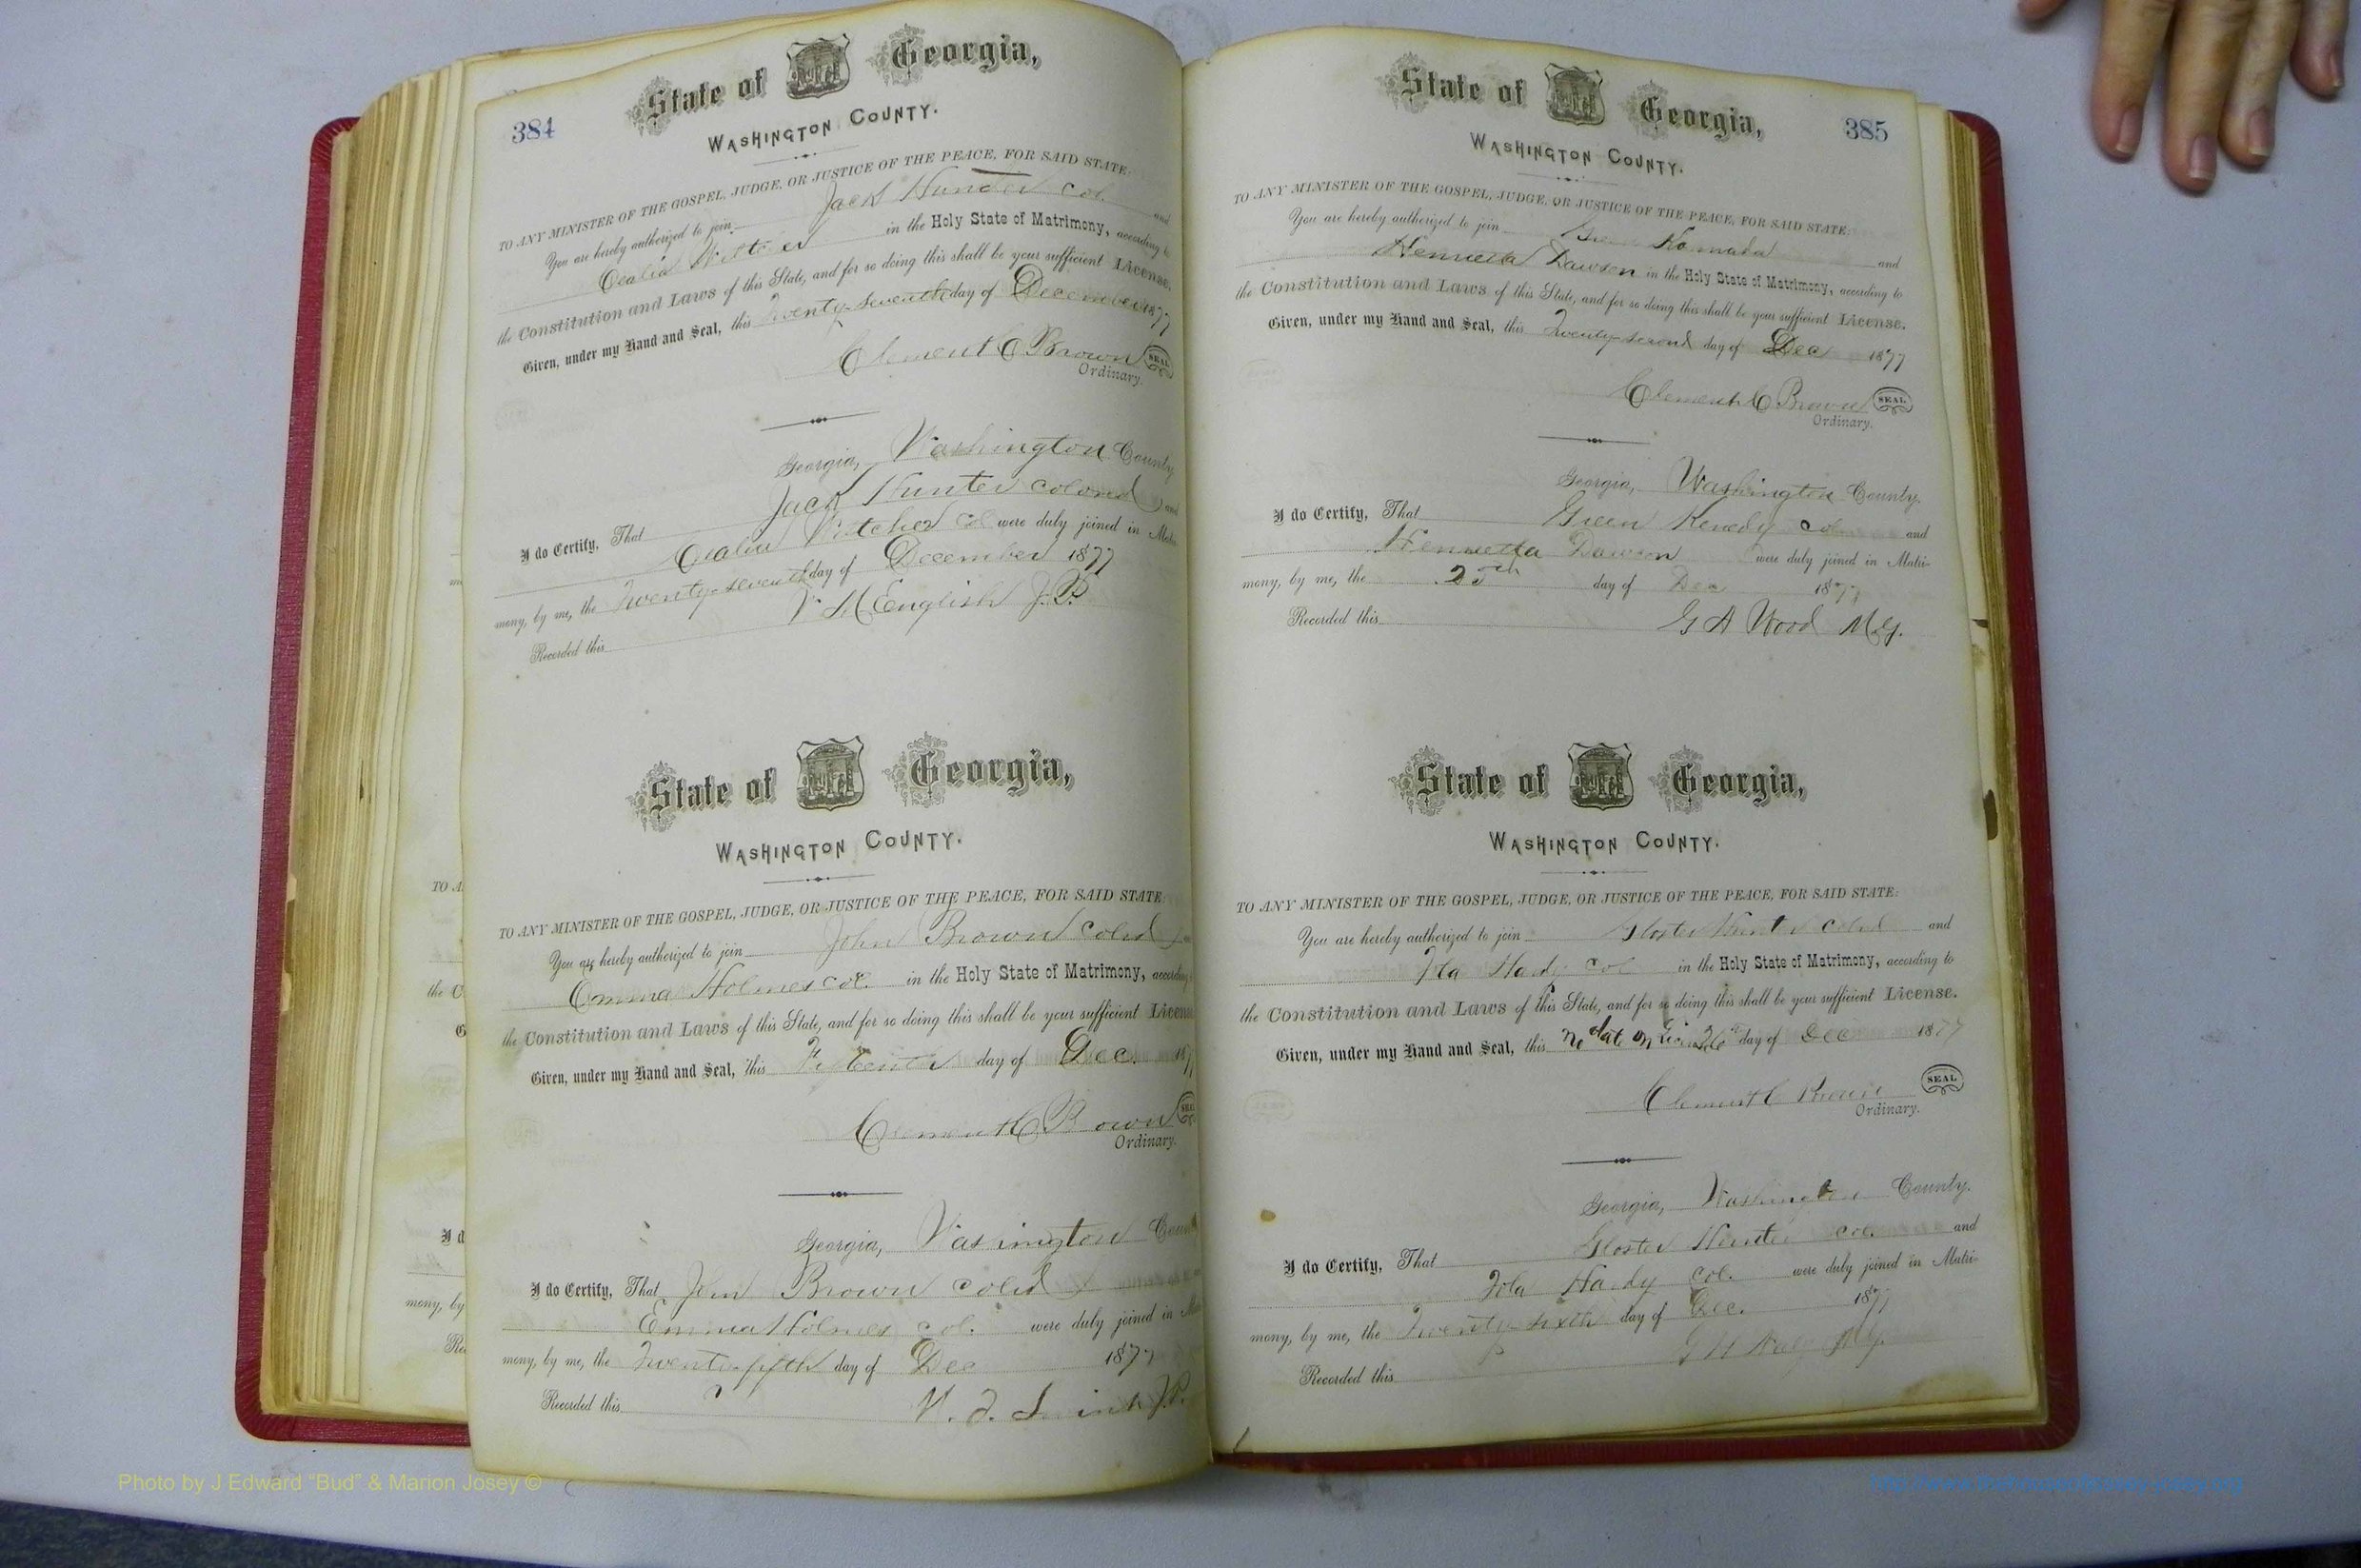 384
State of Georgia,
WASHINGTON COUNTY.
TO ANY MINISTER OF THE GOSPEL, JUDGE, OR JUSTICE OF THE PEACE, FOR SAID STATE:
You are hereby authorized to join Jack Hunter col and
Cealia in the Holy State of Matrimony, according to
the Constitution and Laws of this State, and for so doing this shall be your sufficient License.
Given, under my Hand and Seal, this Twenty-seventh day of December 1877
Clement C Brown SEAL
Ordinary.
Georgia, Washington County
I do Certify, That Jack Hunter colored and
Cealia Witcher col were duly joined in Matri
mony, by me, the Twenty-seventh day of December 1877
Recorded this M English J.P.
State of Georgia,
WASHINGTON COUNTY.
TO ANY MINISTER OF THE GOSPEL, JUDGE, OR JUSTICE OF THE PEACE, FOR SAID STATE:
You are hereby authorized to join John Brown cold
Emma Holmes col. in the Holy State of Matrimony, according
the Constitution and Laws of this State, and for so doing this shall be your sufficient License
Given, under my Hand and Seal, this Fifteenth day of Dec. 187
Clement C Brown SEAL
Ordinary.
Georgia, Washington County
I do Certify, That John Brown cold
Emma Holmes col. were duly joined in
mony, by me, the Twenty-fifth day of Dec 1877
Recorded this J.P.
385
State of Georgia,
WASHINGTON COUNTY.
TO ANY MINISTER OF THE GOSPEL, JUDGE, OR JUSTICE OF THE PEACE, FOR SAID STATE:
You are hereby authorized to join Green and
Henrietta Dawson in the Holy State of Matrimony, according to
the Constitution and Laws of this State, and for so doing this shall be your sufficient License.
Given, under my Hand and Seal, this Twenty-second day of Dec 1877
Clement C Brown SEAL
Ordinary.
Georgia, Washington County.
I do Certify, That Green Kenedy col and
Henrietta Dawson were duly joined in Matri-
mony, by me, the 25th day of Dec 1877
Recorded this G A Wood M.G.
State of Georgia,
WASHINGTON COUNTY.
TO ANY MINISTER OF THE GOSPEL, JUDGE, OR JUSTICE OF THE PEACE, FOR SAID STATE:
You are hereby authorized to join Gloster Hunter cold and
Iola Hardy col in the Holy State of Matrimony, according to
the Constitution and Laws of this State, and for so doing this shall be your sufficient License.
Given, under my Hand and Seal, this no date on Lic. 26th day of Dec 1877
Clement C Brown SEAL
Ordinary.
Georgia, Washington County.
I do Certify, That Gloster Hunter col. and
Iola Hardy col. were duly joined in Matri-
mony, by me, the Twenty-sixth day of Dec. 1877
Recorded this M.G.
Photo by J Edward "Bud" & Marion Josey ©